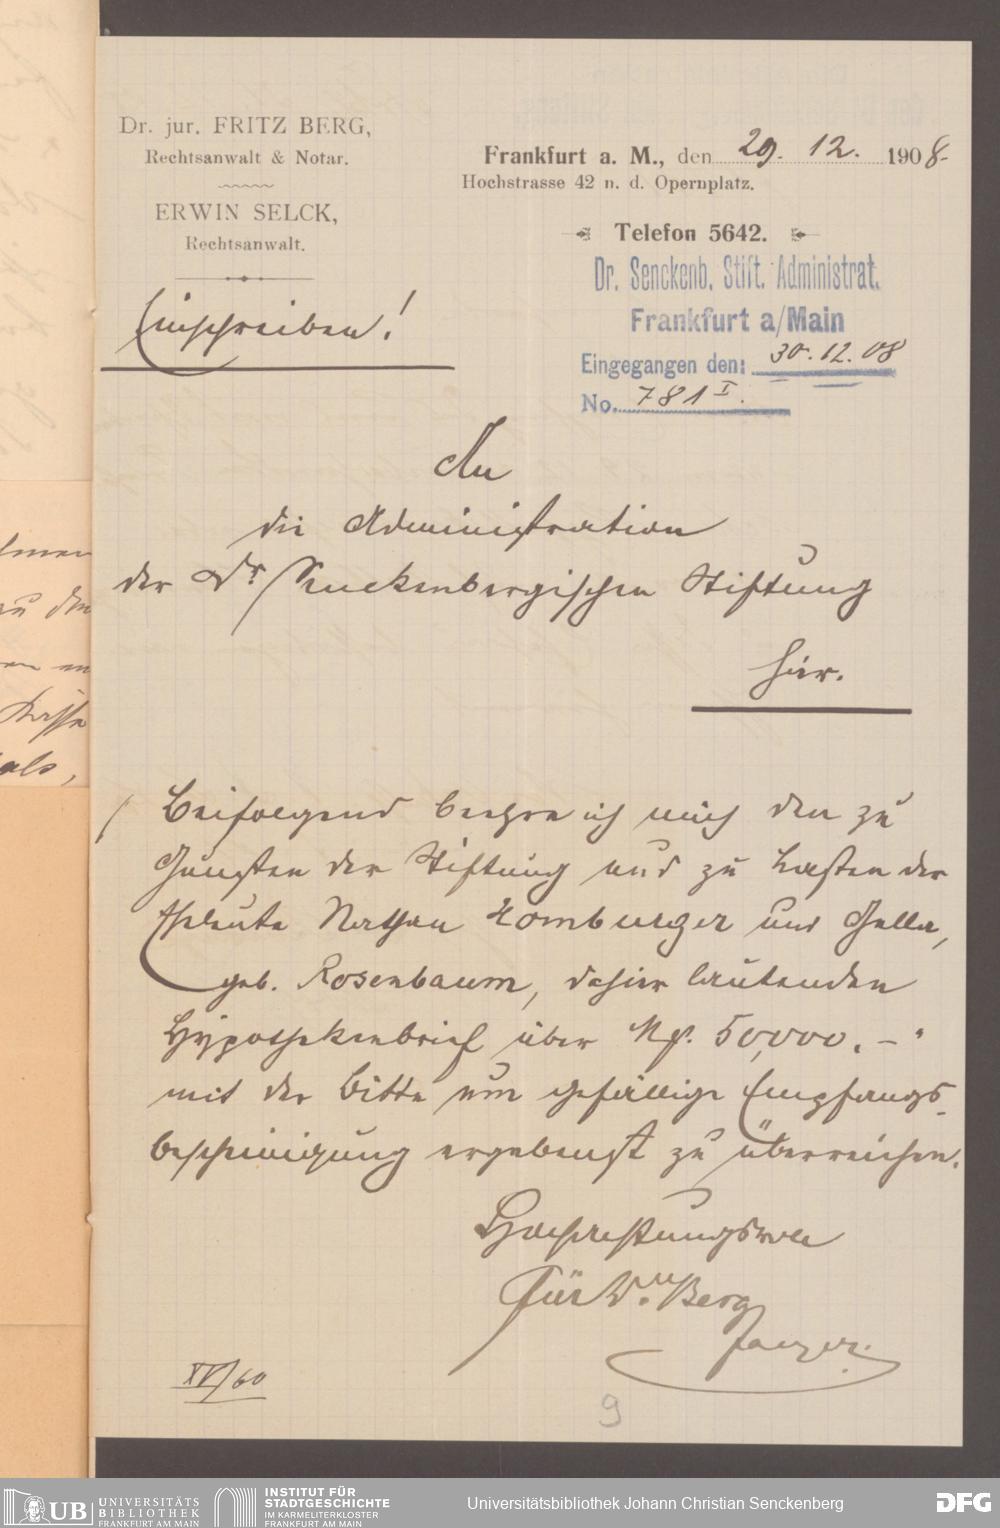 Dr. jur. FRITZ BERG,
Rechtsanwalt & Notar.
ERWIN SELCK,
Rechtsanwalt.
Frankfurt a. M., den 29. 12. 1908.
Hochstrasse 42 n. d. Opernplatz.
Telefon 5642.
Dr. Senckenb. Stift. Administrat.
Frankfurt a/Main
Eingegangen den: 30.12.08
No. 781 I.
Einschreiben!
An
die Administration
der Dr Senckenbergischen Stiftung
hier.
Beifolgend beehre ich mich den zu
Gunsten der Stiftung und zu Lasten der
Eheleute Nathan Homburger und Hella,
geb. Rosenbaum, dahier lautenden
Hypothekenbrief über Mk. 50,000.–
mit der Bitte um gefällige Empfangs-
bescheinigung ergebenst zu überreichen.
Hochachtungsvoll
Für Dr. Berg
XV/60
9
lmen
zu den
en
Kasse
als,
UB UNIVERSITÄTS
BIBLIOTHEK
FRANKFURT AM MAIN
INSTITUT FÜR
STADTGESCHICHTE
IM KARMELITERKLOSTER
FRANKFURT AM MAIN
Universitätsbibliothek Johann Christian Senckenberg
DFG